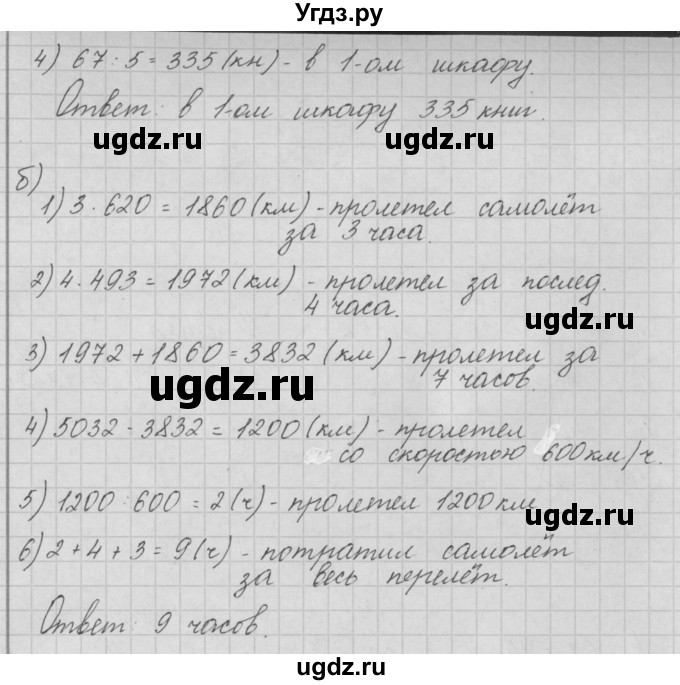 Угдз.ру
4) 67 : 5 = 335 (кн) - в 1-ом шкафу.
Ответ: в 1-ом шкафу 335 книг.
ugdz.ru ugdz.ru
б)
1) 3 · 620 = 1860 (км) - пролетел самолёт
за 3 часа.
2) 4 · 493 = 1972 (км) - пролетел за послед.
4 часа.
ugdz.ru
3) 1972 + 1860 = 3832 (км) - пролетел за
7 часов.
ugdz.ru
4) 5032 - 3832 = 1200 (км) - пролетел
со скоростью 600 км/ч.
5) 1200 : 600 = 2 (ч) - пролетел 1200 км
ugdz.ru
6) 2 + 4 + 3 = 9 (ч) - потратил самолёт
за весь перелёт.
Ответ: 9 часов.
ugdz.ru